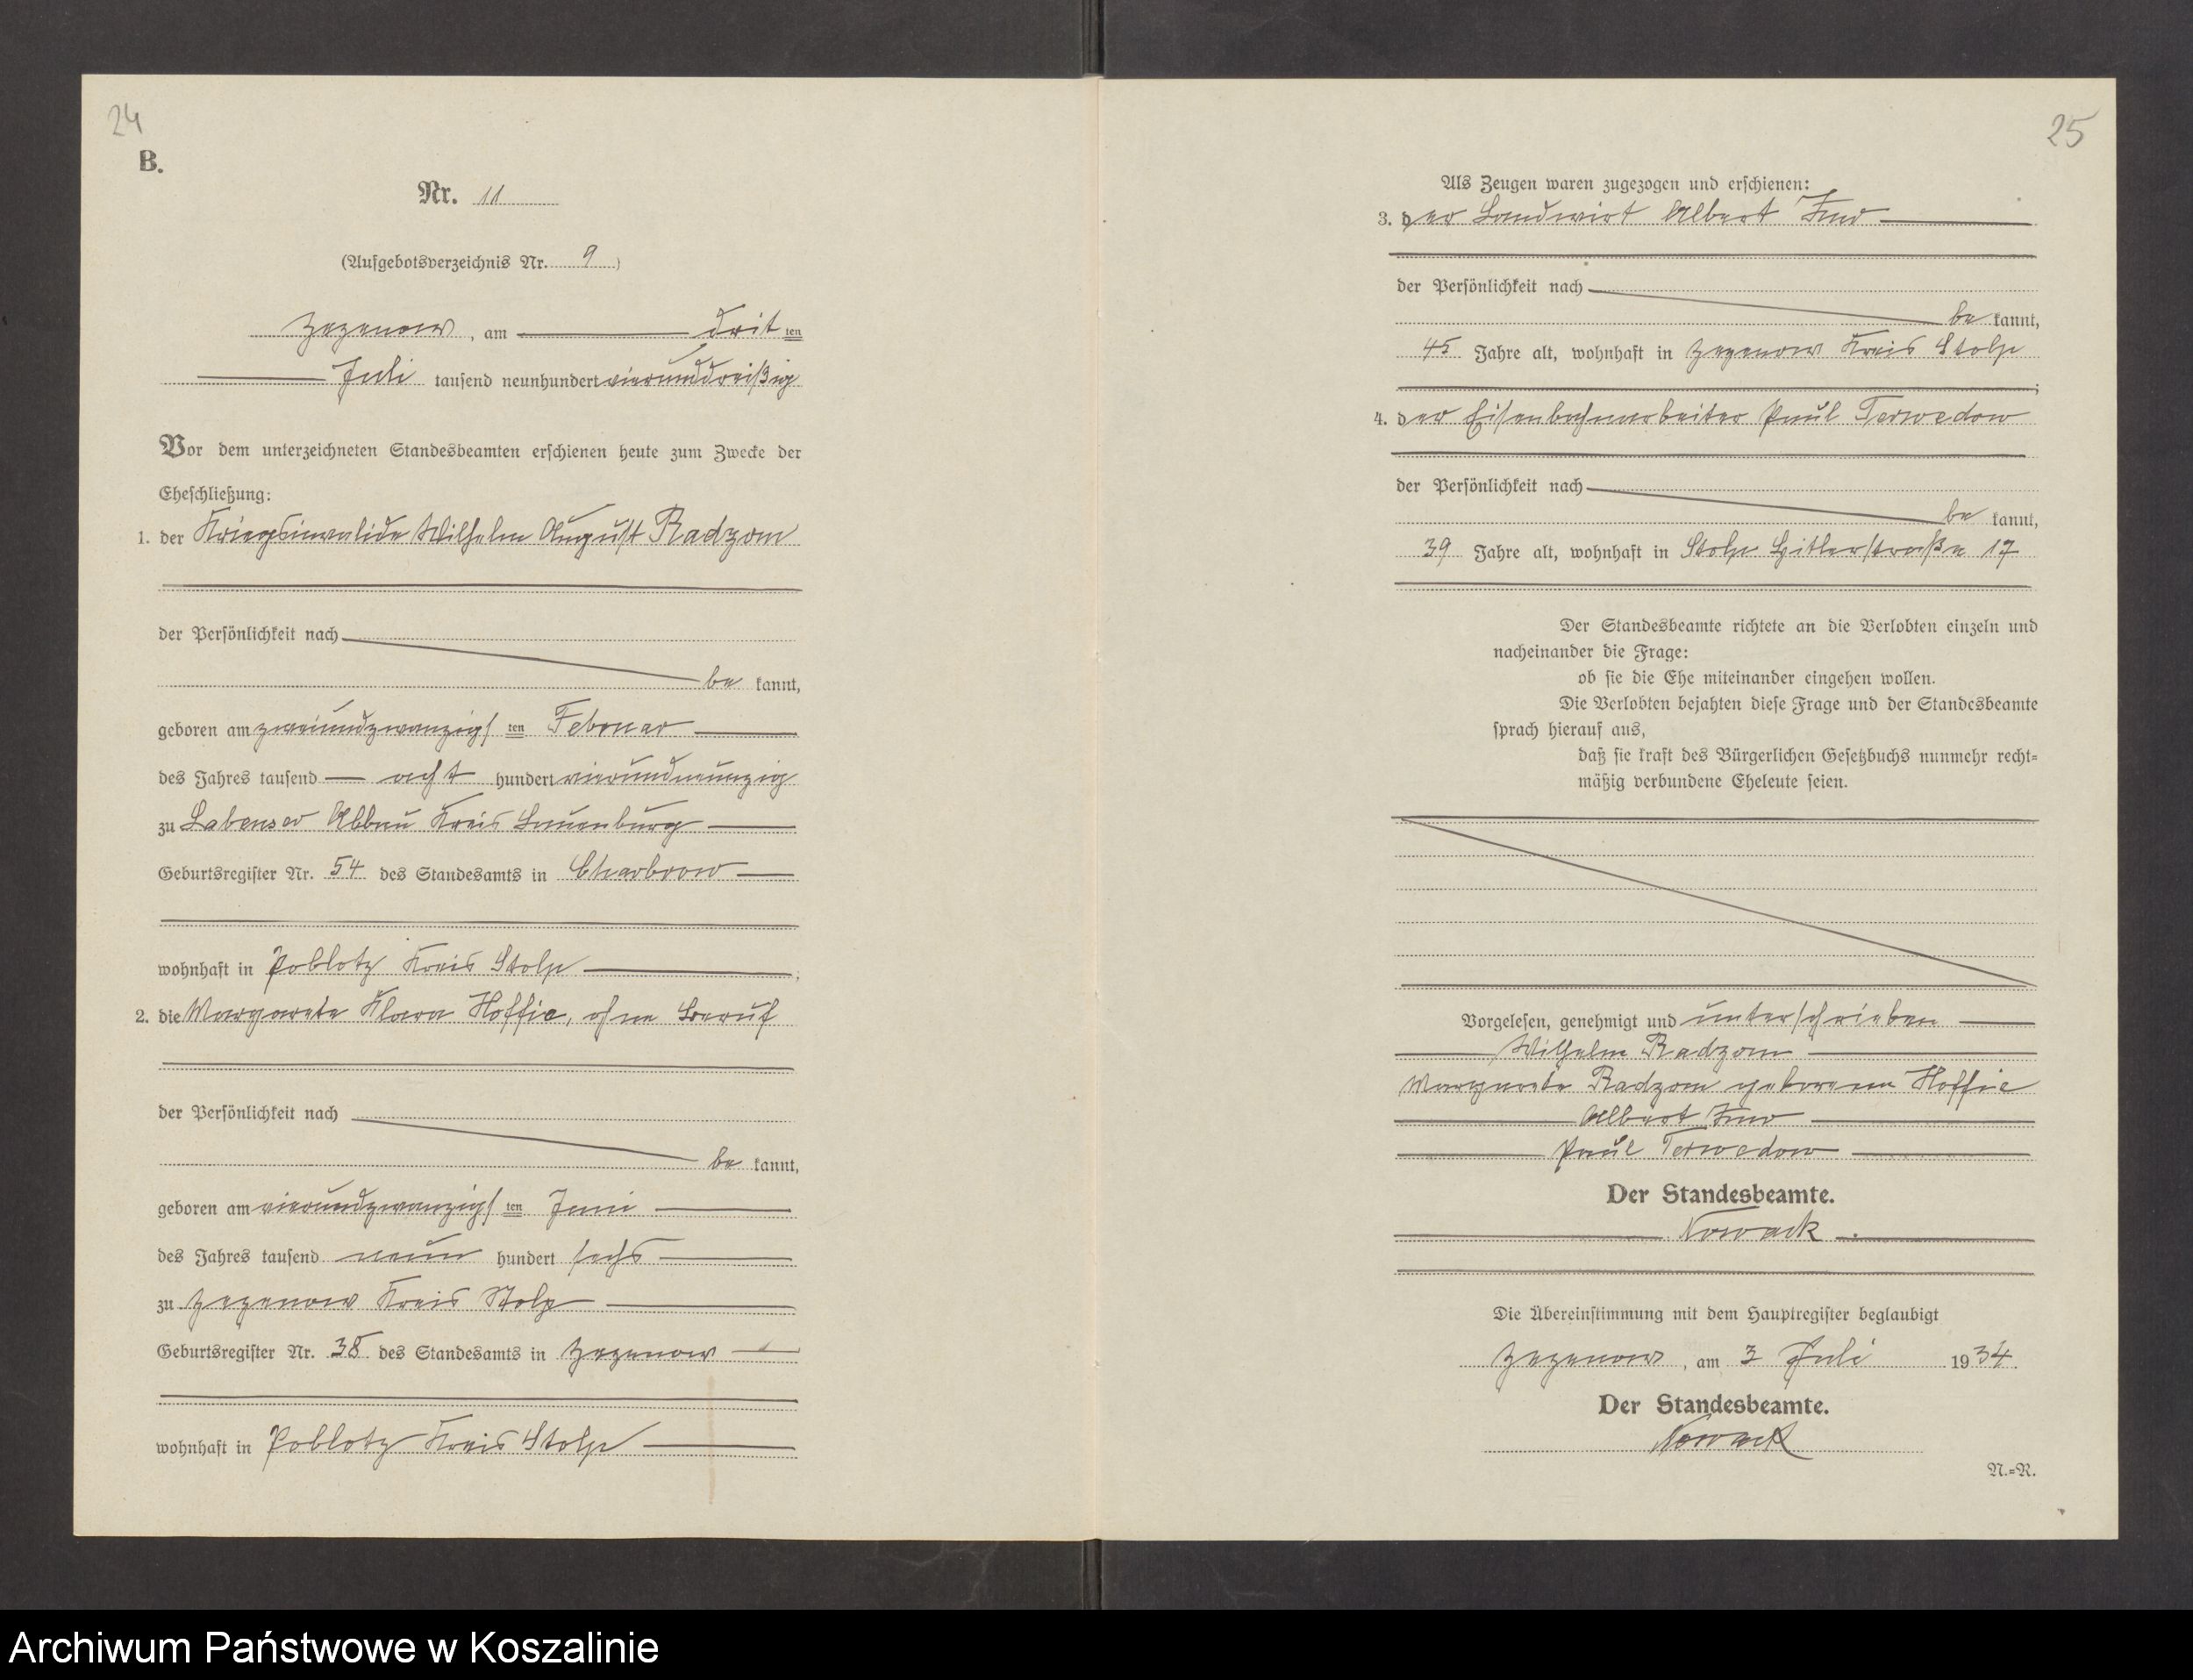 24
B.
Nr. 11
(Aufgebotsverzeichnis Nr. 9)
Zezenow, am dritten
Juli tausend neunhundert vierunddreißig
Vor dem unterzeichneten Standesbeamten erschienen heute zum Zwecke der
Eheschließung:
1. der Kriegsinvalide Wilhelm August Radzom
der Persönlichkeit nach
be kannt,
geboren am zweiundzwanzigsten Februar
des Jahres tausend acht hundert vierundneunzig
zu Labensen Abbau Kreis Lauenburg
Geburtsregister Nr. 54 des Standesamts in Charbrow
wohnhaft in Poblotz Kreis Stolp;
2. die Margarete Klara Hoffie, ohne Beruf
der Persönlichkeit nach
be kannt,
geboren am vierundzwanzigsten Juni
des Jahres tausend neun hundert sechs
zu Zezenow Kreis Stolp
Geburtsregister Nr. 38 des Standesamts in Zezenow
wohnhaft in Poblotz Kreis Stolp
25
Als Zeugen waren zugezogen und erschienen:
3. der Landwirt Albert
der Persönlichkeit nach
be kannt,
45 Jahre alt, wohnhaft in Zezenow Kreis Stolp
;
4. der Eisenbahnarbeiter Paul Terwedow
der Persönlichkeit nach
be kannt,
39 Jahre alt, wohnhaft in Stolp Hitlerstraße 17
Der Standesbeamte richtete an die Verlobten einzeln und
nacheinander die Frage:
ob sie die Ehe miteinander eingehen wollen.
Die Verlobten bejahten diese Frage und der Standesbeamte
sprach hierauf aus,
daß sie kraft des Bürgerlichen Gesetzbuchs nunmehr recht=
mäßig verbundene Eheleute seien.
Vorgelesen, genehmigt und unterschrieben
Wilhelm Radzom
Margarete Radzom geborenen Hoffie
Albert
Paul Terwedow
Der Standesbeamte.
Nowack.
Die Übereinstimmung mit dem Hauptregister beglaubigt
Zezenow, am 3 Juli 1934.
Der Standesbeamte.
Nowack
N.=R.
Archiwum Państwowe w Koszalinie